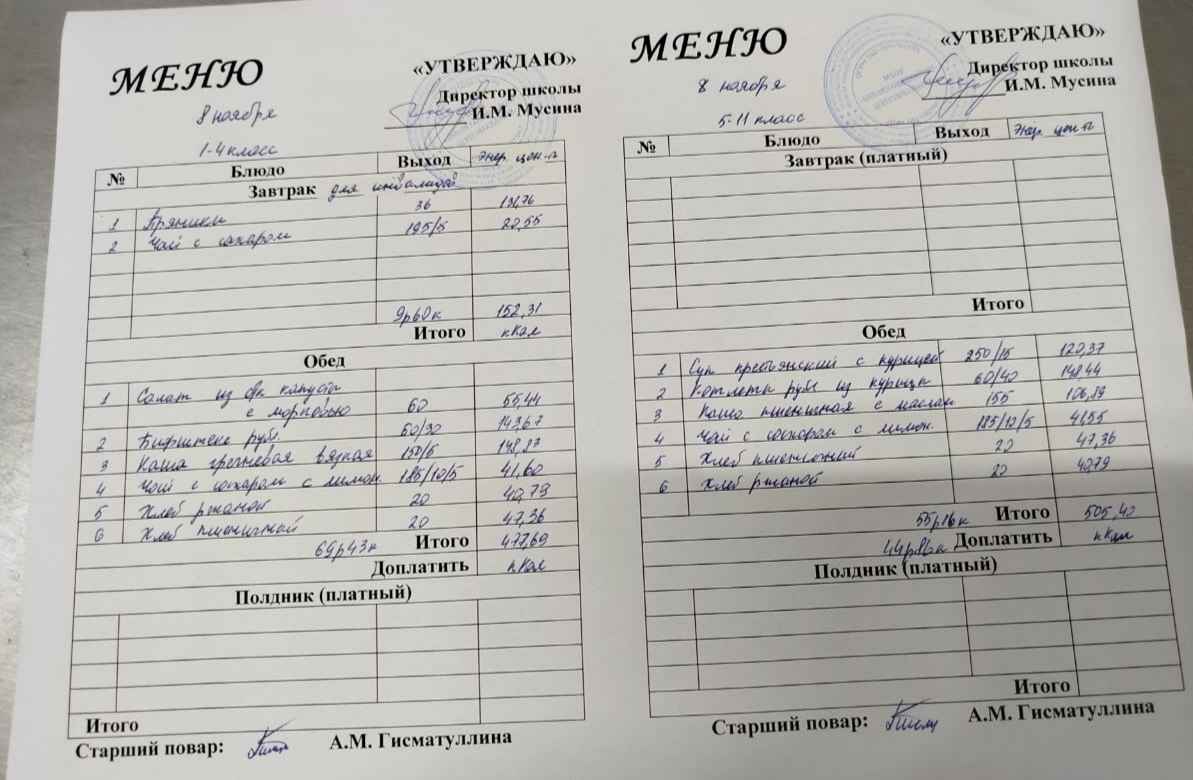 МЕНЮ
«УТВЕРЖДАЮ»
Директор школы
И.М. Мусина
8 ноября
1-4 класс
№ Блюдо Выход Энер. цен-ть
Завтрак для инвалидов
1 Пряники 36 131,76
2 Чай с сахаром 195/5 20,55
9р60к 152,31
Итого кКал
Обед
1 Салат из капусты
с морковью 60 55,44
2 Бифштекс руб. 143,67
3 Каша гречневая вязкая 150/5 148,83
4 Чай с сахаром с лимон. 185/10/5 41,60
5 Хлеб ржаной 20 40,79
6 Хлеб пшеничный 20 47,36
69р43к Итого 477,69
Доплатить кКал
Полдник (платный)
Итого
Старший повар: А.М. Гисматуллина
МЕНЮ
«УТВЕРЖДАЮ»
Директор школы
И.М. Мусина
8 ноября
5-11 класс
№ Блюдо Выход Энер. цен-ть
Завтрак (платный)
Итого
Обед
1 Суп крестьянский с курицей 250/15 120,37
2 Котлеты руб. из курицы 60/40 148,44
3 Каша пшеничная с маслом 155 106,89
4 Чай с сахаром с лимон. 185/10/5 41,55
5 Хлеб пшеничный 20 47,36
6 Хлеб ржаной 20 40,79
55р16к Итого 505,40
44р86к Доплатить кКал
Полдник (платный)
Итого
Старший повар: А.М. Гисматуллина